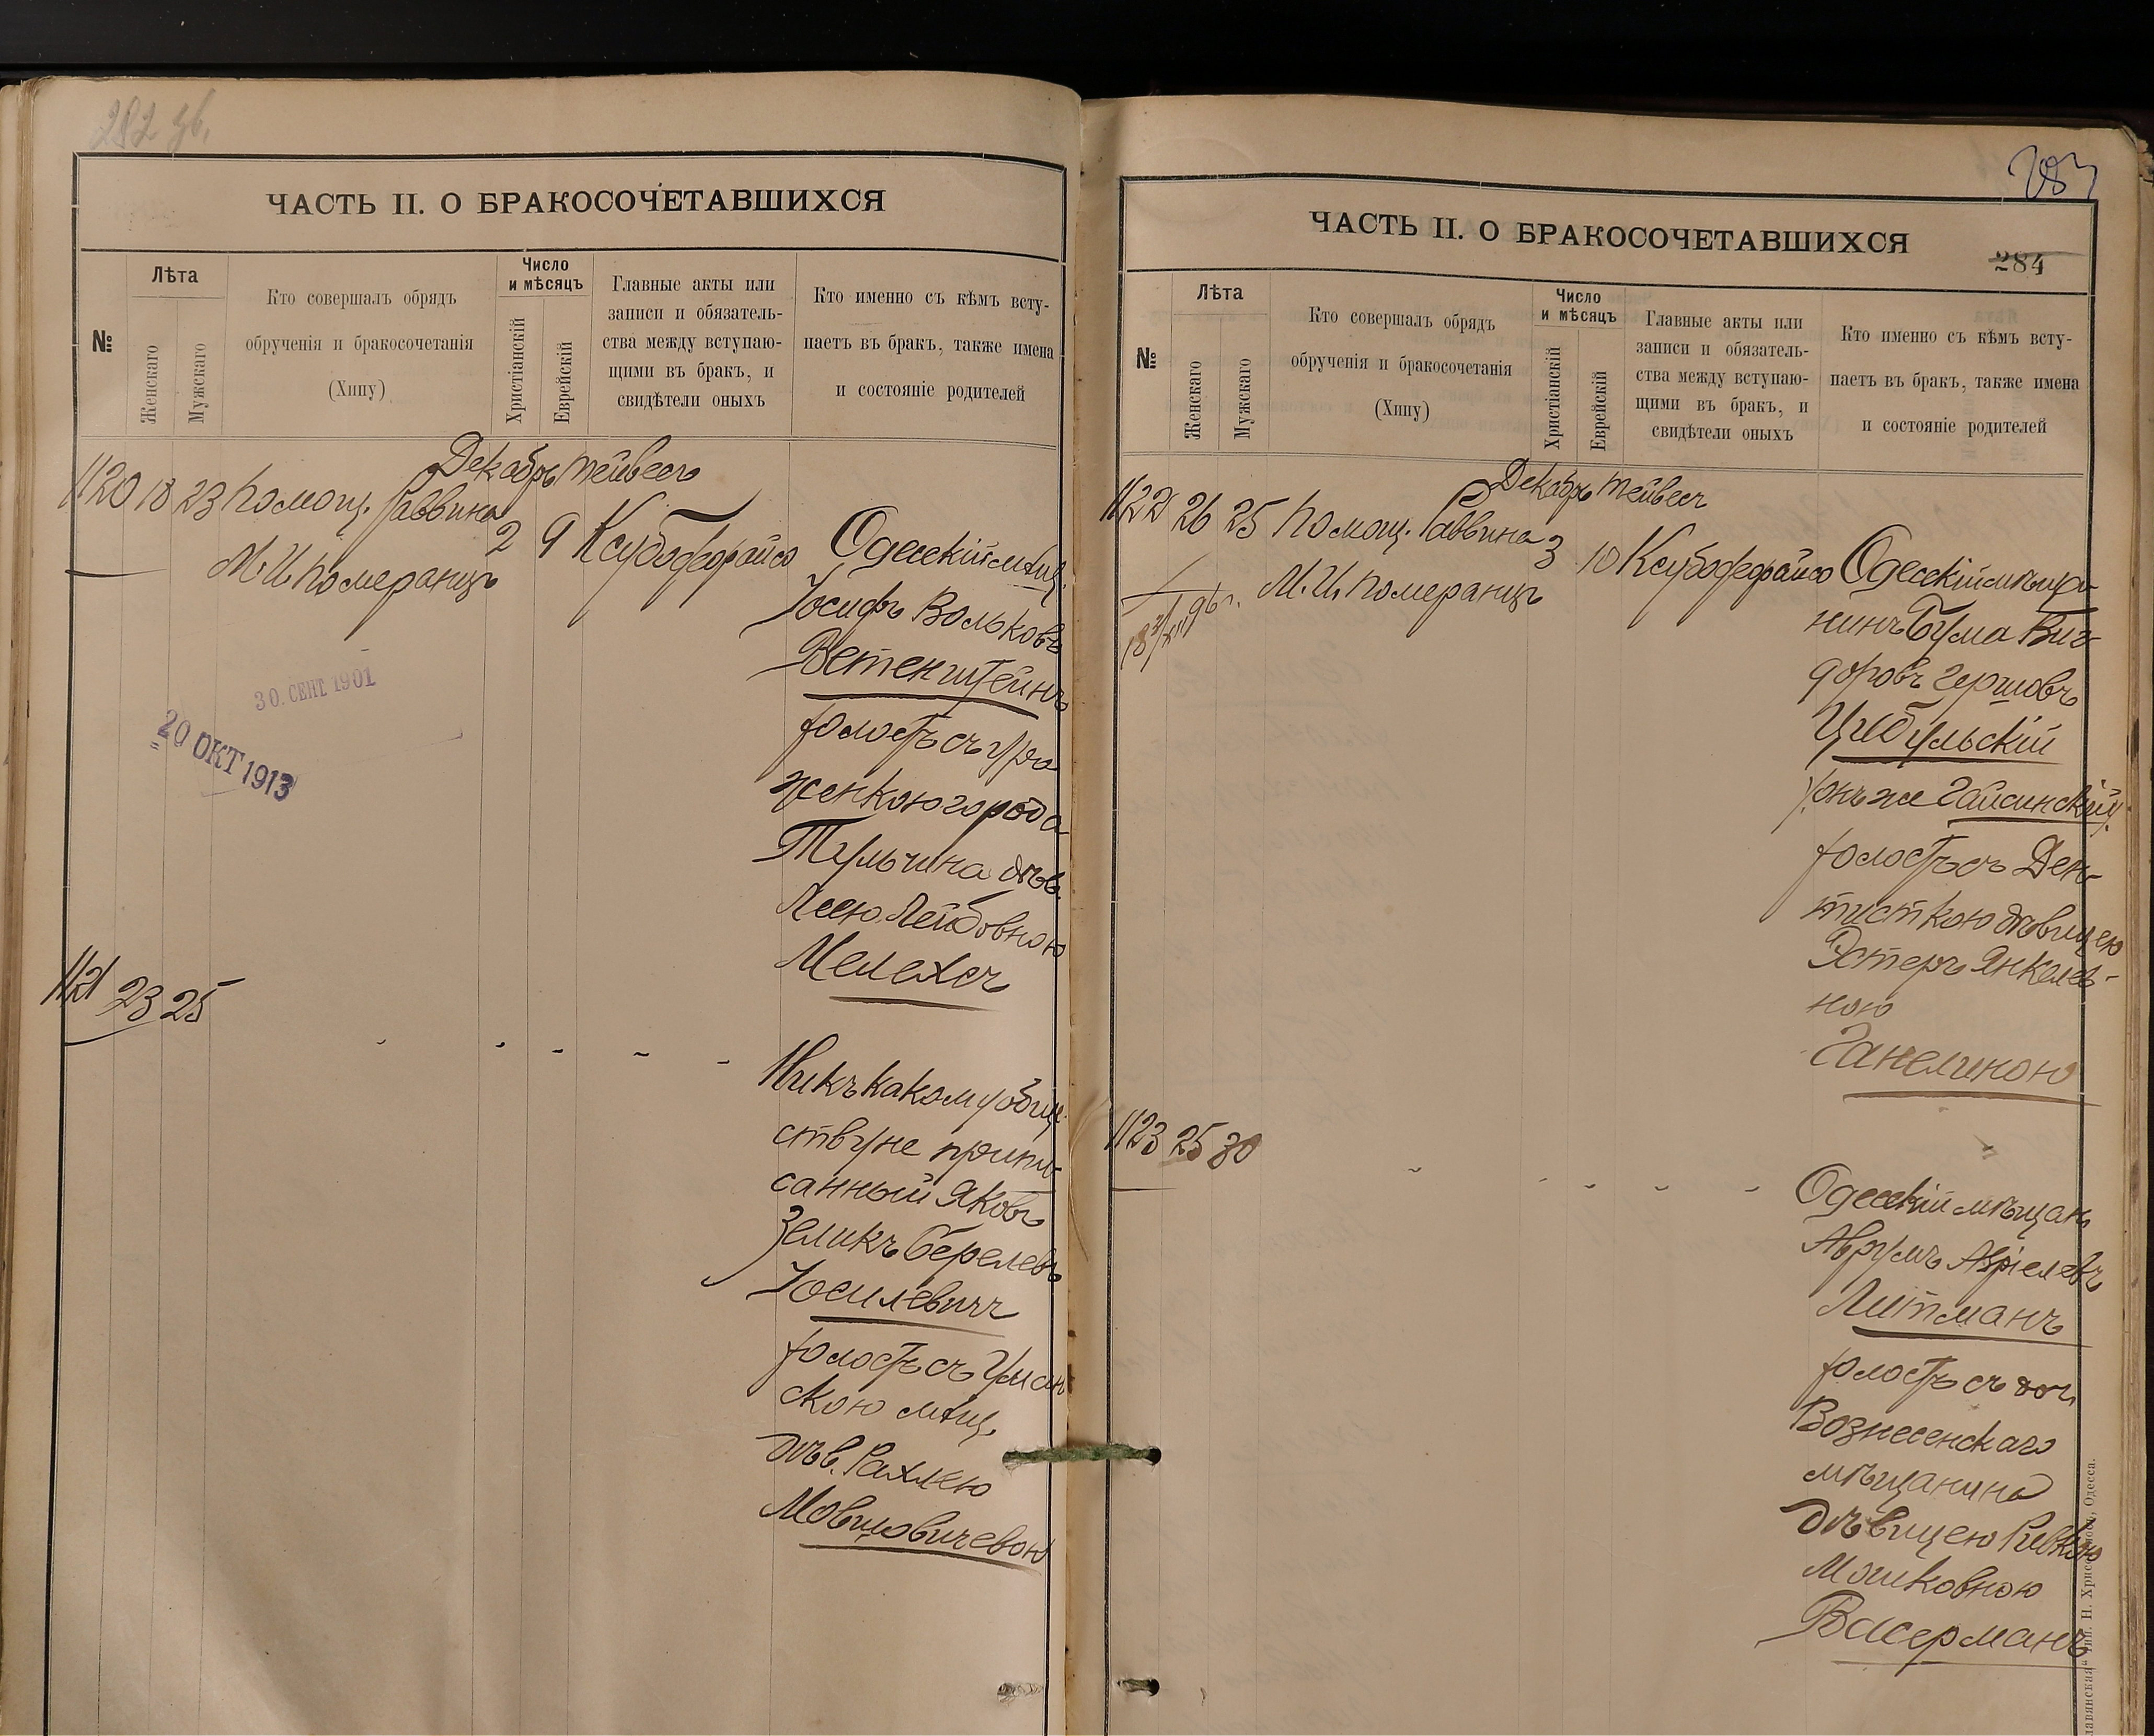 282 зв.
ЧАСТЬ II. О БРАКОСОЧЕТАВШИХСЯ
№
Лѣта
Женскаго
Мужскаго
Кто совершалъ обрядъ
обрученія и бракосочетанія
(Хипу)
Число
и мѣсяцъ
Христіанскій
Еврейскій
Главные акты или
записи и обязатель-
ства между вступаю-
щими въ бракъ, и
свидѣтели оныхъ
Кто именно съ кѣмъ всту-
паетъ въ бракъ, также имена
и состояніе родителей
Декабрь Тейвесъ
1120 18 23 Помощ. Раввина 2 9 Ксубофедрайсо
М. И. Померанцъ
Одесскій мѣщ.
Іосифъ Вольковъ
Ветенштейнъ
холостъ съ уро
женкою города
Тульчина дѣв.
Лееею Лейбовною
Мелехсъ
30. СЕНТ. 1901
20 ОКТ 1913
1121 23 25
Ни къ какому общ.
ству не припи-
санный Яковъ
Зеликъ Берелевъ
Іосилевичъ
холостъ съ Уман
скою мѣщ.
дѣв. Рахлею
Мовшовичевою
283
ЧАСТЬ II. О БРАКОСОЧЕТАВШИХСЯ
284
№
Лѣта
Женскаго
Мужскаго
Кто совершалъ обрядъ
обрученія и бракосочетанія
(Хипу)
Число
и мѣсяцъ
Христіанскій
Еврейскій
Главные акты или
записи и обязатель-
ства между вступаю-
щими въ бракъ, и
свидѣтели оныхъ
Кто именно съ кѣмъ всту-
паетъ въ бракъ, также имена
и состояніе родителей
Декабрь Тейвесъ
1122 26 25 Помощ. Раввина 3 10 Ксубофедрайсо
М. И. Померанцъ
Одесскій мѣща-
нинъ Бума Виг-
доровъ Гершовъ
Цыбульскій
онъ же Гайсинскій
холостъ съ Ден-
тисткою дѣвицею
Эстеръ Янкелев-
ною
Ганелиною
1123 25 30
Одесскій мѣщан.
Аврумъ Аріелевъ
Литманъ
холостъ съ доч.
Вознесенскаго
мѣщанина
дѣвицею Ривкою
Мошковною
Васерманъ